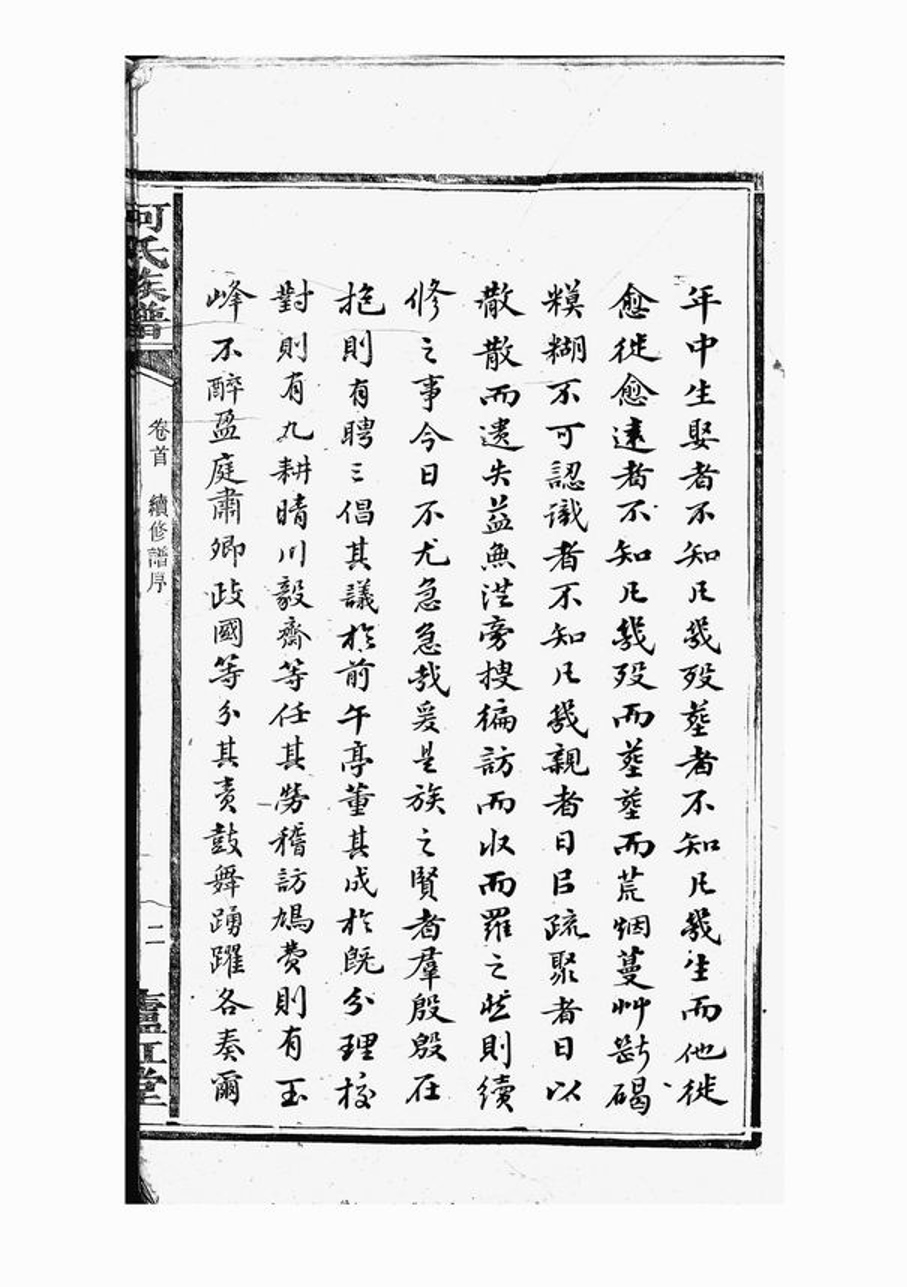 年中生娶者不知凡幾歿塟者不知凡幾生而他徙
愈徙愈遠者不知凡幾歿而塟塟而荒烟蔓艸斷碣
糢糊不可認識者不知凡幾親者日㠯疏聚者日以
散散而遺失益無從旁搜徧訪而收而羅之然則續
修之事今日不尤急急哉爰是族之賢者羣殷殷在
抱則有聘三倡其議於前午亭董其成於既分理校
對則有丸耕晴川毅齋等任其勞稽訪鳩費則有玉
峰不醉盈庭肅卿政國等分其責鼓舞踴躍各奏爾
何氏族譜
卷首 續修譜序
二
廬江堂